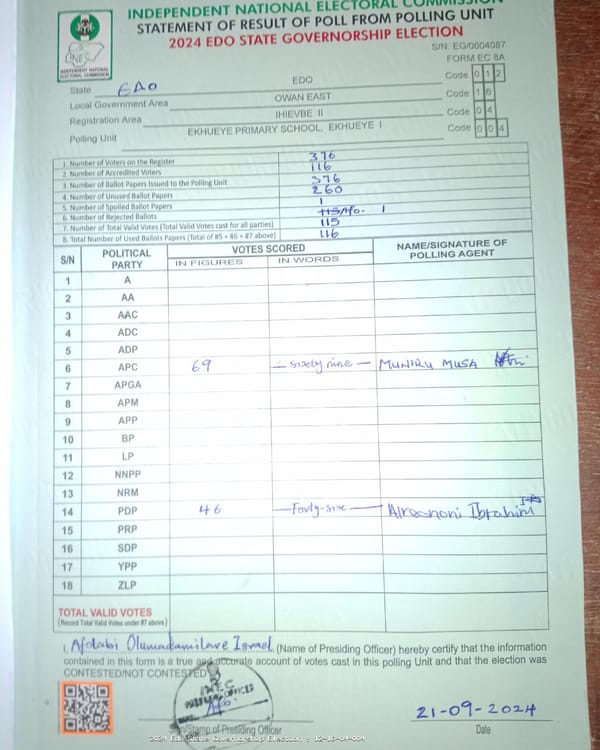 INDEPENDENT NATIONAL ELECTORAL COMMISSION
STATEMENT OF RESULT OF POLL FROM POLLING UNIT
2024 EDO STATE GOVERNORSHIP ELECTION
S/N: EG/0004087
FORM EC 8A
INEC
INDEPENDENT NATIONAL ELECTORAL COMMISSION
State EDO EDO Code 0 1 2
Local Government Area OWAN EAST Code 1 6
Registration Area IHIEVBE II Code 0 4
Polling Unit EKHUEYE PRIMARY SCHOOL, EKHUEYE I Code 0 0 4
1. Number of Voters on the Register 376
2. Number of Accredited Voters 116
3. Number of Ballot Papers Issued to the Polling Unit 376
4. Number of Unused Ballot Papers 260
5. Number of Spoiled Ballot Papers 1
6. Number of Rejected Ballots 1
7. Number of Total Valid Votes (Total Valid Votes cast for all parties) 115
8. Total Number of Used Ballots Papers (Total of #5 + #6 + #7 above) 116
S/N POLITICAL PARTY VOTES SCORED NAME/SIGNATURE OF POLLING AGENT
IN FIGURES IN WORDS
1 A
2 AA
3 AAC
4 ADC
5 ADP
6 APC 69 - sixty nine - MUNIRU MUSA
7 APGA
8 APM
9 APP
10 BP
11 LP
12 NNPP
13 NRM
14 PDP 46 - Forty-six - Ibrahim
15 PRP
16 SDP
17 YPP
18 ZLP
TOTAL VALID VOTES
(Record Total Valid Votes under #7 above)
I, Afolabi Oluwadamilare Israel (Name of Presiding Officer) hereby certify that the information
contained in this form is a true and accurate account of votes cast in this polling Unit and that the election was
CONTESTED/NOT CONTESTED
INEC
PRESIDING OFFICER
21-09-2024
Sign/Stamp of Presiding Officer Date
2024 Edo State Governorship Election : 12-16-04-004